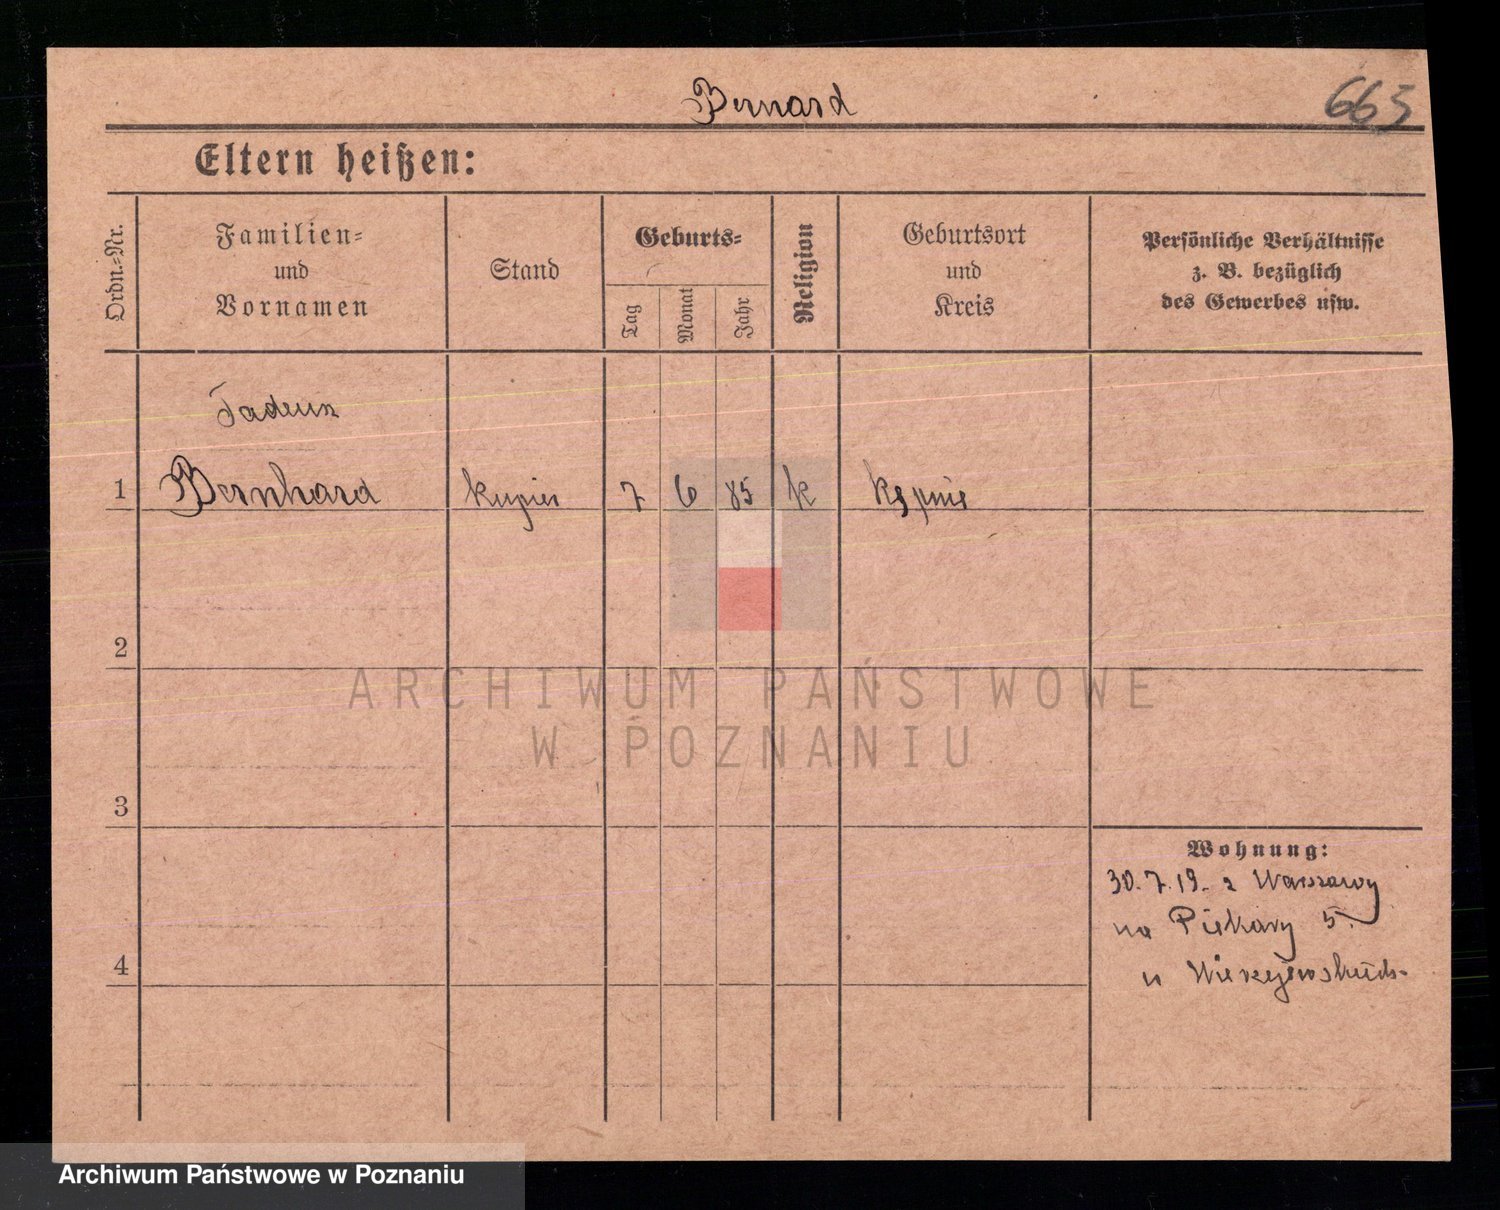 Bernard
665
Eltern heißen:
Ordn.-Nr.
Familien-
und
Vornamen
Stand
Geburts-
Tag
Monat
Jahr
Religion
Geburtsort
und
Kreis
Persönliche Verhältnisse
z. B. bezüglich
des Gewerbes usw.
Tadeusz
1 Bernhard kupiec 7 6 85 k Kępnie
2
3
4
Wohnung:
30.7.19. z Warszawy
na Piekary 5.
u
ARCHIWUM PAŃSTWOWE
W POZNANIU
Archiwum Państwowe w Poznaniu